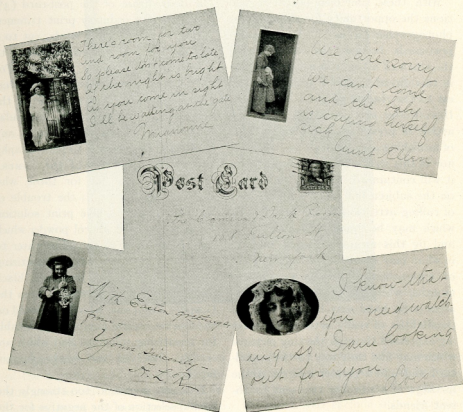 There's room for two
and room for you
So please don't come too late
If the night is bright
As you come in sight
I'll be waiting at the gate
Marianne
We are sorry
we can't come
and the baby
is crying herself
sick
Aunt Ellen
Post Card
New York
With Easter greetings,
from-
Yours sincerely-
A. L. R.
I know that
you need watch
ing, so I am looking
out for you
Lois